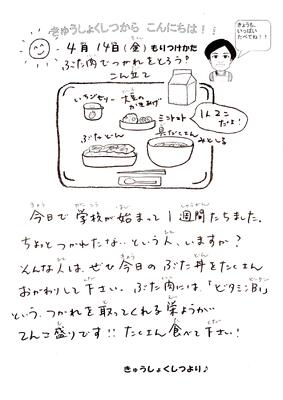 きゅうしょくしつから こんにちは!!
きょうも、
いっぱい
たべてね!!
4月 14日(金) もりつけかた
ぶた肉でつかれをとろう?
こん立て
いちごゼリー
大豆の
かきあげ
ミニトマト
1人2こ
だよ!
ぶたどん
具だくさん
みそしる
今日で学校が始まって1週間たちました。
ちょっとつかれたな…という人、いますか?
そんな人は、ぜひ今日のぶた丼をたくさん
おかわりして下さい。ぶた肉には、「ビタミンB1」
という、つかれを取ってくれる栄ようが
てんこ盛りです!!たくさん食べて下さい!
きゅうしょくしつより♪